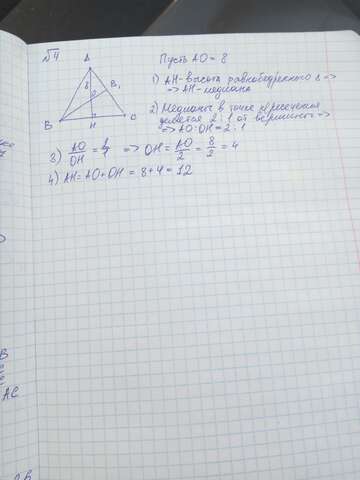 √4
Пусть AO = 8
A
8
O
B₁
B
H
C
1) AH - высота равнобедренного Δ =>
=> AH - медиана
2) Медианы в точке пересечения
делятся 2:1 от вершины =>
=> AO:OH = 2:1
3) AO/OH = 2/1 => OH = AO/2 = 8/2 = 4
4) AH = AO + OH = 8 + 4 = 12
B
AC